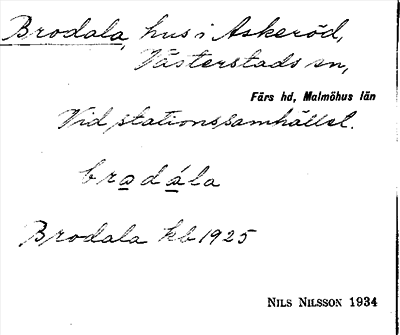 Brodala, hus i Askeröd,
Västerstads sn,
Färs hd, Malmöhus län
Vid stationssamhället.
bradála
Brodala kb 1925
NILS NILSSON 1934